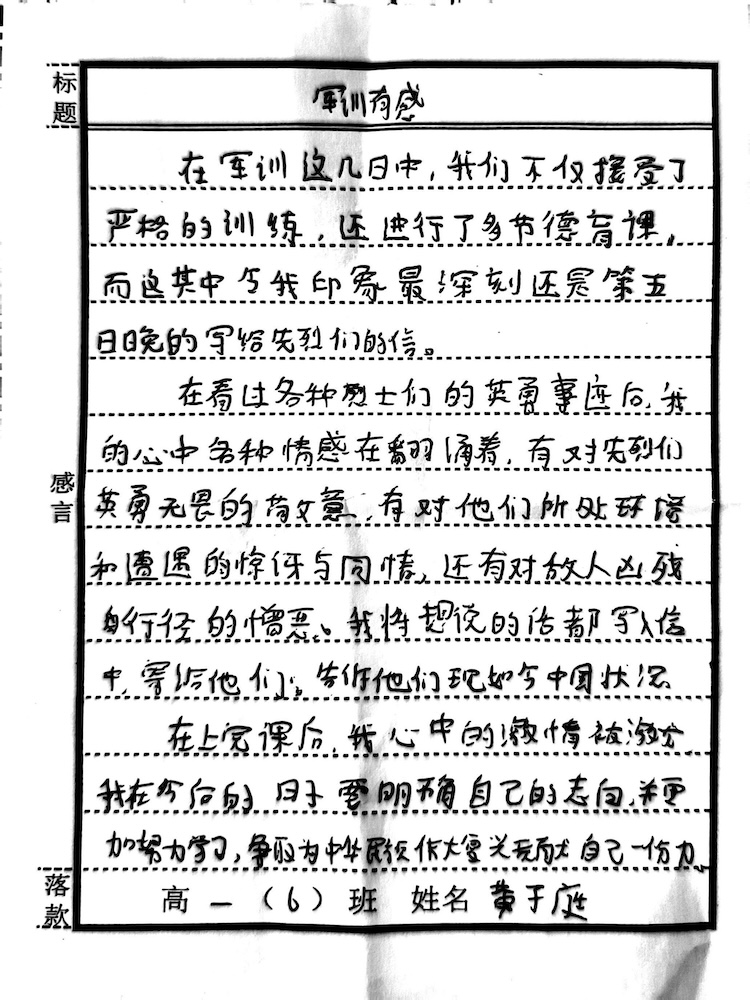 标题
军训有感
在军训这几日中，我们不仅接受了
严格的训练，还进行了多节德育课，
而这其中令我印象最深刻还是第五
日晚的写给先烈们的信。
在看过各种烈士们的英勇事迹后，我
的心中各种情感在翻涌着，有对先烈们
感言
英勇无畏的敬意，有对他们所处环境
和遭遇的惊讶与同情，还有对敌人凶残
行径的憎恶。我将想说的话都写入信
中，寄给他们，告诉他们现如今中国状况
在上完课后，我心中的激情被激发，
我在今后的日子要明确自己的志向，并更
加努力学习，争取为中华民族伟大复兴贡献自己一份力。
落款
高一（6）班 姓名 黄于庭